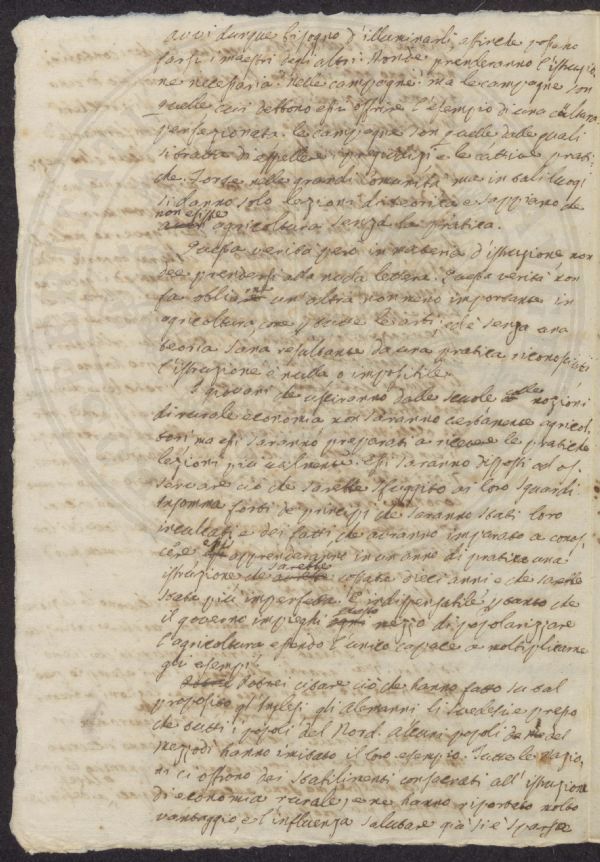 avvi dunque bisogno d'illuminarli, affinche possano
farsi i maestri degli altri. Aonde prenderanno l'istruzio
ne necessaria? Nelle campagne? ma le campagne son
quelle cui debbono essi offrire l'esempio di una coltura
perfezionata. le campagne son quelle dalle quali
si tratta di espellere i pregiudizi e le cattive prati
che. Forse nelle grandi Comunità? ma in tali luogi
si danno solo lezioni di teorica e sappiamo che
non esiste agricoltura senza la pratica.
Questa verita però in materia d'istruzione non
dee prendersi alla nuda lettera. Questa verità non
fa obliare un'altra non meno importante in
agricoltura come p tutte le arti, cioè senza una
teoria sana resultante da una pratica riconosciuta
l'istruzione è nulla o impossibile.
I giovani che usciranno dalle scuole colle nozioni
di rurale economia non saranno certamente agricol
tori ma essi saranno preparati a ricevere le pratiche
lezioni più utilmente. essi saranno disposti ad os
servare ciò che sarebbe sfuggito ai loro sguardi.
Insomma forti de' principj che saranno stati loro
inculcati, e dei fatti che avranno imparato a conos
cere essi apprenderanno in un anno di pratica una
istruzione che sarebbe costata dieci anni e che sarebbe
stata più imperfetta. È indispensabile p tanto che
il governo impieghi questo mezzo di popolarizzare
l'agricoltura essendo l'unico capace a moltiplicarne
gli esempi.
Potrei citare ciò che hanno fatto su tal
proposito gl'Inglesi gli Alemanni li Svedesi e presso
che tutti i popoli del Nord. Alcuni popoli del
mezzodì hanno imitato il loro esempio. Tutte le nazio
ni ci offrono dei stabilimenti consecrati all'istruzione
di economia rurale, e ne hanno riportato molto
vantaggio, e l'influenza salutare già si è sparsa